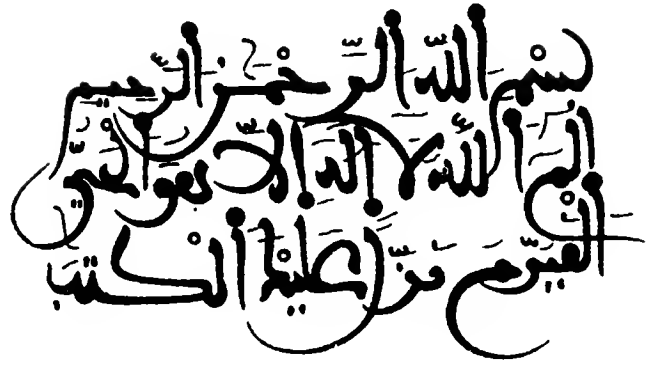 بِسْمِ اللَّهِ الرَّحْمَنِ الرَّحِيمِ
الم اللَّهُ لَا إِلَهَ إِلَّا هُوَ الْحَيُّ
الْقَيُّومُ نَزَّلَ عَلَيْكَ الْكِتَبَ